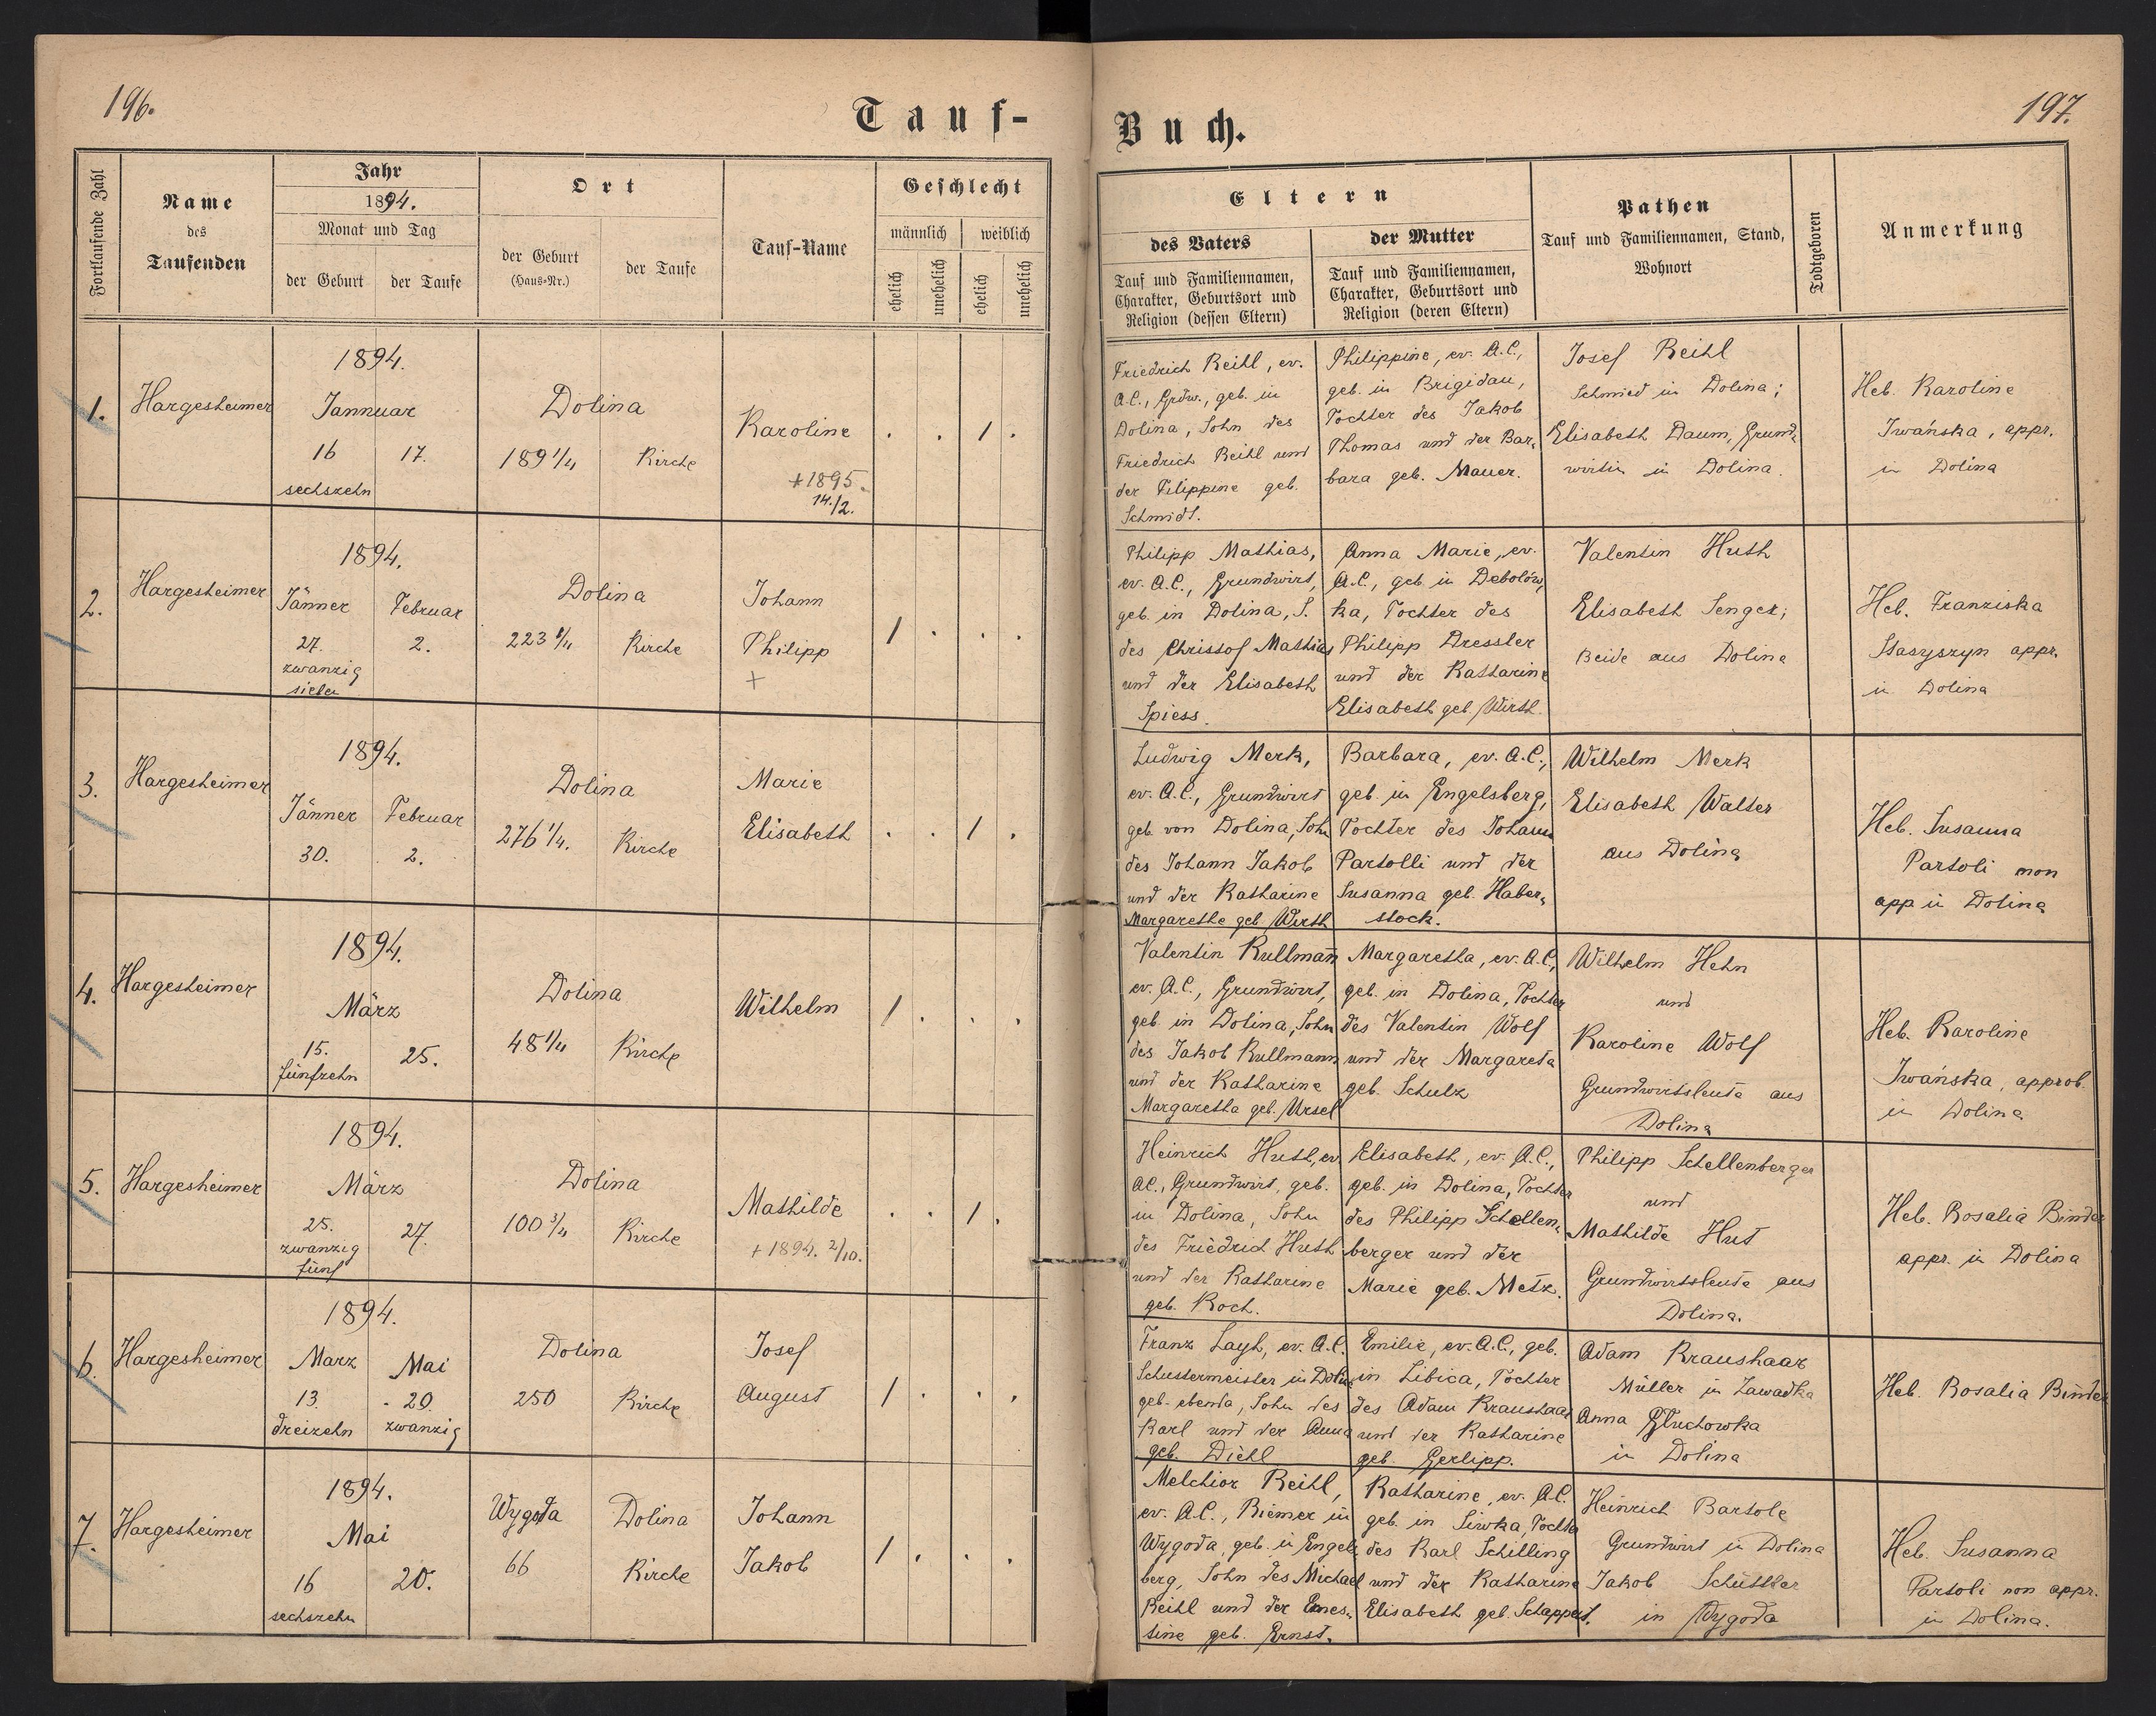 196.
Tauf-
Fortlaufende Zahl
Name
des
Taufenden
Jahr
1894.
Monat und Tag
der Geburt
der Taufe
Ort
der Geburt
(Haus-Nr.)
der Taufe
Tauf-Name
Geschlecht
männlich
weiblich
ehelich
unehelich
ehelich
unehelich
1.
Hargesheimer
1894.
Jannuar
16
17.
sechszehn
Dolina
189 1/4
Kirche
Karoline
+1895.
14./2.
. . 1 .
2.
Hargesheimer
1894.
Jänner
Februar
27.
2.
zwanzig
sieben
Dolina
223 1/4
Kirche
Johann
Philipp
+
1 . . .
3.
Hargesheimer
1894.
Jänner
Februar
30.
2.
Dolina
276 1/4.
Kirche
Marie
Elisabeth
. . 1 .
4.
Hargesheimer
1894.
März
15.
25.
fünfzehn
Dolina
48 1/4
Kirche
Wilhelm
1 . . .
5.
Hargesheimer
1894.
März
25.
27.
zwanzig
fünf
Dolina
100 3/4
Kirche
Mathilde
+ 1894. 2/10.
. . 1 .
6.
Hargesheimer
1894.
Marz
Mai
13.
20.
dreizehn
zwanzig
Dolina
250
Kirche
Josef
August
1 . . .
7.
Hargesheimer
1894.
Mai
16
20.
sechszehn
Wygoda
Dolina
66
Kirche
Johann
Jakob
1 . . .
197.
Buch.
Eltern
des Vaters
Tauf und Familiennamen,
Charakter, Geburtsort und
Religion (dessen Eltern)
der Mutter
Tauf und Familiennamen,
Charakter, Geburtsort und
Religion (deren Eltern)
Pathen
Tauf und Familiennamen, Stand,
Wohnort
Todtgeboren
Anmerkung
Friedrich Reihl, ev.
A.C., Grdw., geb. in
Dolina, Sohn des
Friedrich Reihl und
der Filippine geb.
Schmidt.
Philippine, ev. A.C.,
geb. in Brigidau,
Tochter des Jakob
Thomas und der Bar-
bara geb. Mauer.
Josef Reihl
Schmied in Dolina;
Elisabeth Daum, Grund-
wirtin in Dolina.
Heb. Karoline
Iwańska, appr.
in Dolina
Philipp Mathias,
ev. A.C., Grundwirt,
geb. in Dolina, S.
des Christof Mathias
und der Elisabeth
Spiess.
Anna Marie, ev.
A.C., geb. in Debolów-
ka, Tochter des
Philipp Dressler
und der Katharine
Elisabeth geb Wirth.
Valentin Huth
Elisabeth Senger;
Beide aus Dolina
Heb. Franziska
Stasyszyn appr.
in Dolina
Ludwig Merk,
ev. A.C., Grundwirt
geb. von Dolina, Sohn
des Johann Jakob
und der Katharine
Margarethe geb Wirth
Barbara, ev. A.C.,
geb. in Engelsberg,
Tochter des Johann
Partolli und der
Susanna geb. Haber-
stock.
Wilhelm Merk
Elisabeth Walter
aus Dolina
Heb. Susanna
Partoli non
app in Dolina
Valentin Kullmann
ev. A.C., Grundwirt,
geb in Dolina, Sohn
des Jakob Kullmann
und der Katharine
Margaretha geb. Ursel
Margaretha, ev. A.C.,
geb. in Dolina, Tochter
des Valentin Wolf
und der Margareta
geb. Schulz
Wilhelm Hehn
und
Karoline Wolf
Grundwirtsleute aus
Dolina
Heb. Karoline
Iwańska, approb.
in Dolina
Heinrich Huth, ev
AC., Grundwirt, geb.
in Dolina, Sohn
des Friedrich Huth
und der Katharine
geb. Koch.
Elisabeth, ev. A.C.,
geb. in Dolina, Tochter
des Philipp Schellen-
berger und der
Marie geb. Metz.
Philipp Schellenberger
und
Mathilde Hut
Grundwirtsleute aus
Dolina.
Heb. Rosalia Binder
appr. in Dolina
Franz Layh, ev. A.C.
Schustermeister in Dolina
geb. ebenda, Sohn des
Karl und der Anna
geb. Diehl
Emilie, ev. A.C., geb.
in Libica, Tochter
des Adam Kraushaar
und der Katharine
geb. Gerlipp.
Adam Kraushaar
Müller in Zawadka
Anna Głuchowka
in Dolina
Heb. Rosalia Binder
Melchior Reihl,
ev. A.C., Riemer in
Wygoda, geb. in Engels-
berg, Sohn des Michael
Reihl und der Ernes-
tine geb. Ernst.
Katharine, ev. A.C.
geb. in Siwka, Tochter
des Karl Schilling
und der Katharine
Elisabeth geb. Schappert.
Heinrich Bartole
Grundwirt in Dolina
Jakob Schüttler
in Wygoda
Heb. Susanna
Partoli non appr.
in Dolina.